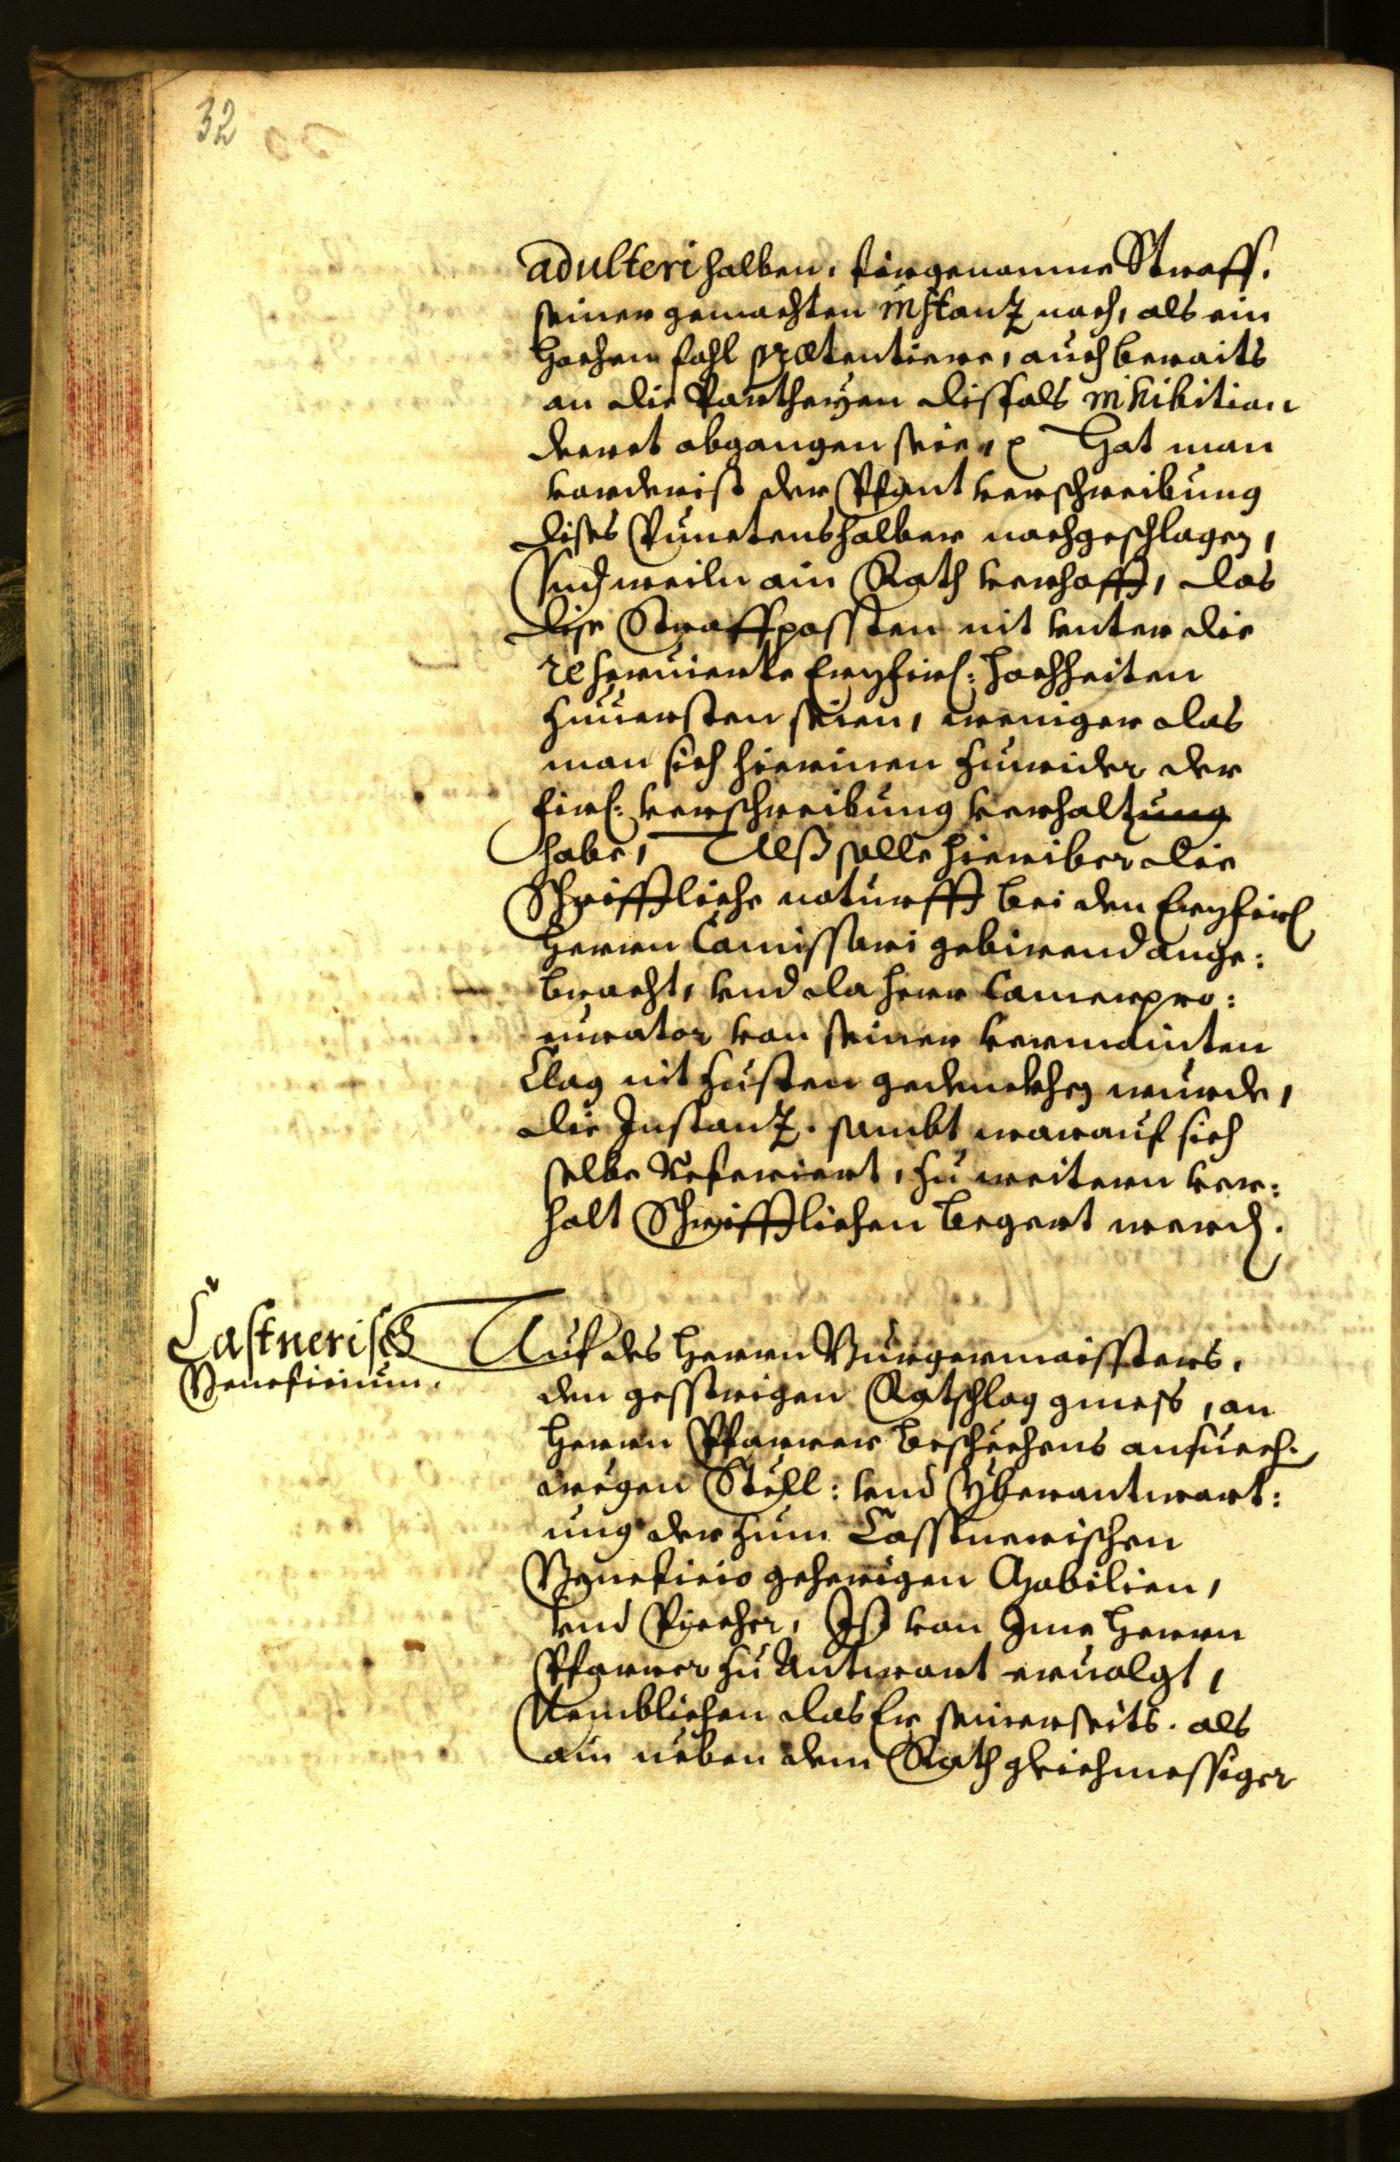 32
adulteri halben, firgenomne Straff,
seiner gemachten instanz nach, als ein
hochen fahl prætentiere, auch beraits
an die Partheyen disfals inhibition
decret abgangen seie, Hat man
vorderist der Pfant verschreibung
dises Punctens halber nachgeschlagen,
Und weiln ain Rath verhofft, das
dise Straffposten nit unter die
reseruierte Erzfirl: hochheiten
zuuersten seien, weniger das
man sich hierinen zuwider der
firl: verschreibung verhalt
habe, Alß solle hieriber die
Schrifftliche noturfft bei den Erzfirl
Herrn Comissari gebirend ange:
bracht, vnd da herr Camerpro:
curator von seiner vermainten
Clag nit zusten gedenckhen wurde,
die Instanz sambt worauf sich
selbe Referiert, zu weitern ver:
halt Schrifftlichen begert werden.
Castnerisch
Beneficium.
Auf des Herrn Burgermaissters,
den gesstrigen Ratschlag gmess, an
Herrn Pfarrer beschechens ansuech.
wegen Stell: vnd Yberantwort:
ung der zum Casstnerischen
Beneficio geherigen Mobilien,
vnd Piecher, Ist von Ime Herrn
Pfarrer zu Antwort eruolgt,
Nemblichen das Er seinerseits als
ain neben dem Rath gleichmessiger